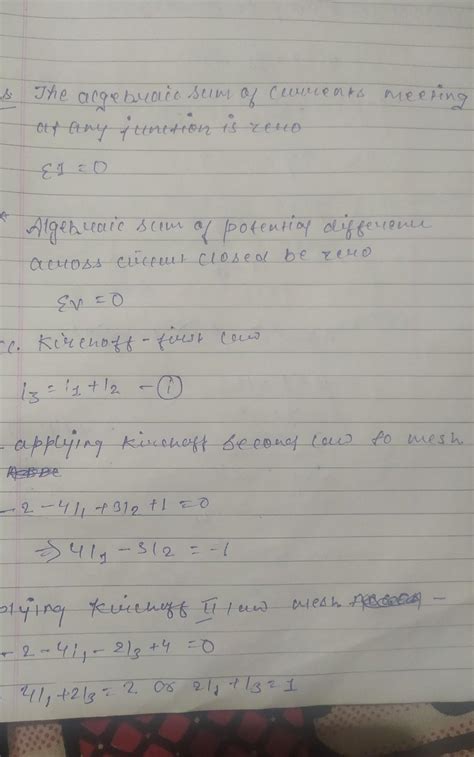 s The algebraic sum of currents meeting
at any junction is zero
ΣI = 0
* Algebraic sum of potential difference
across circuit closed be zero
Σv = 0
cc. Kirchoff - first law
I3 = I1 + I2 - (i)
- applying Kirchoff second law to mesh
- 2 - 4I1 + 3I2 + 1 = 0
⇒ 4I1 - 3I2 = -1
plying Kirchoff II law mesh -
- 2 - 4I1 - 2I3 + 4 = 0
4I1 + 2I3 = 2 or 2I1 + I3 = 1